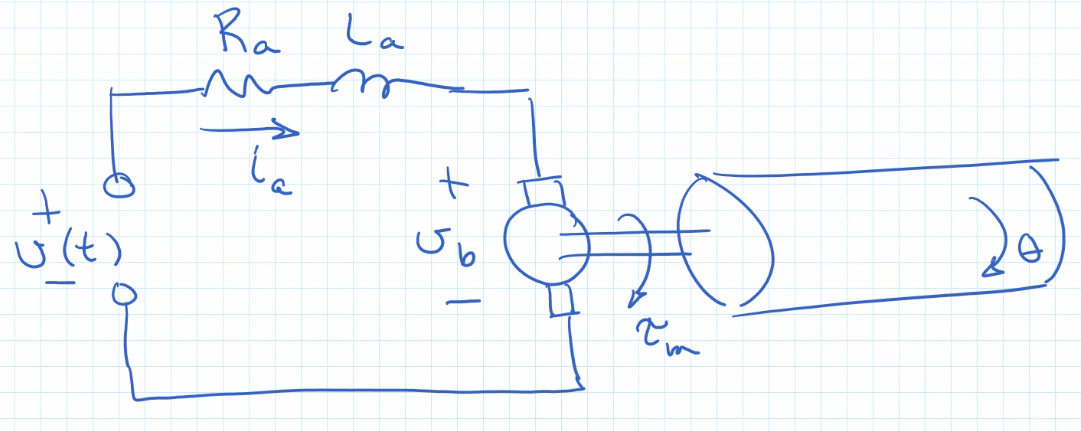 Ra La
ia
+
v(t)
−
+
vb
−
τm
θ